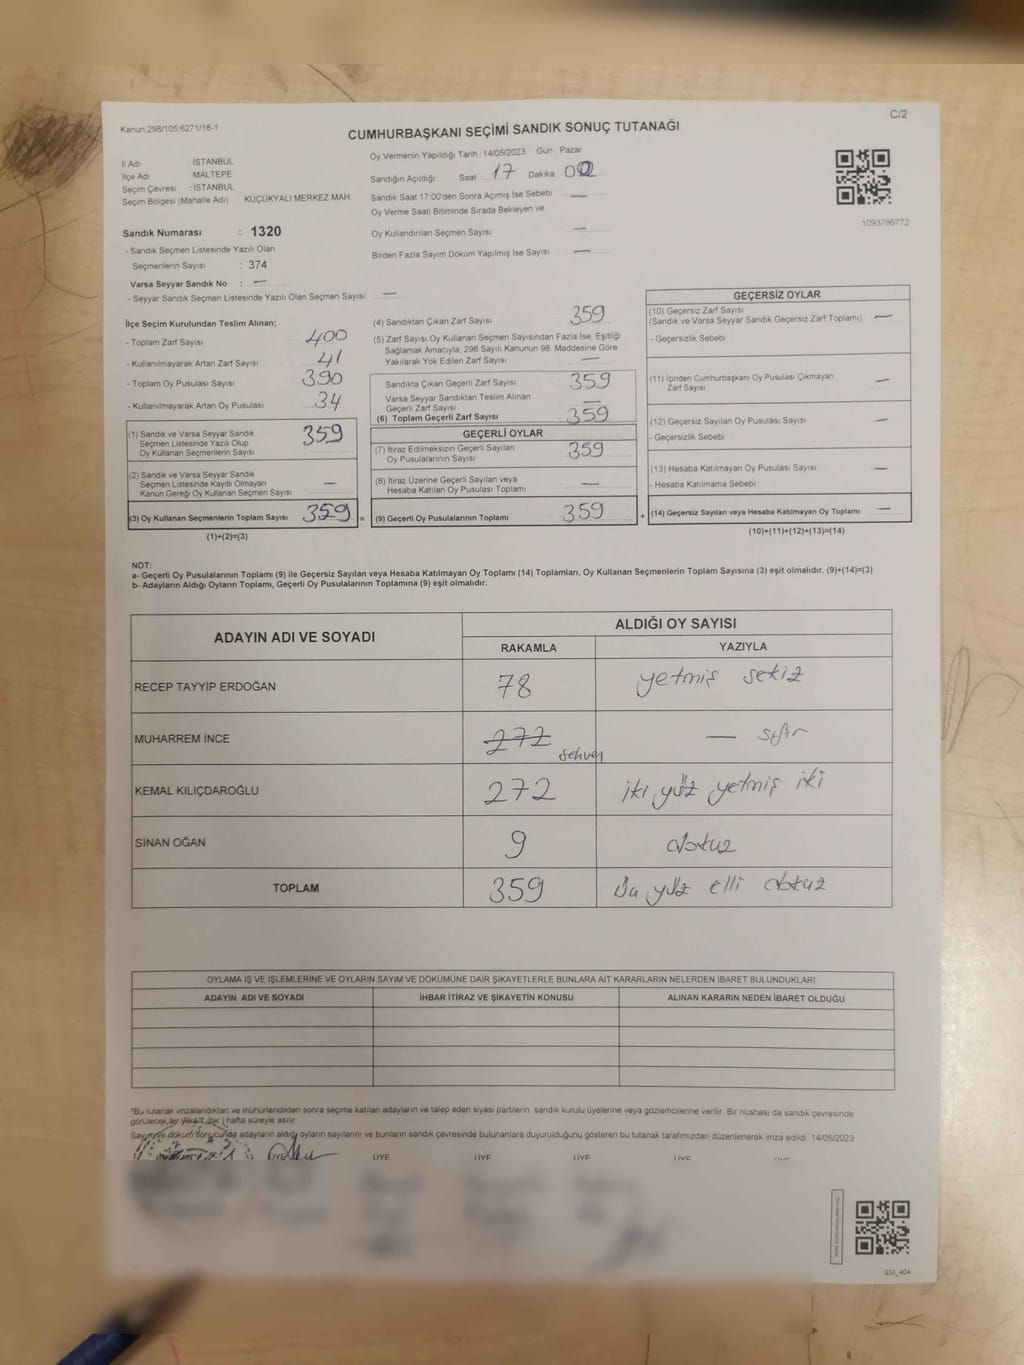 Kanun:298/105;6271/18-1
C/2
CUMHURBAŞKANI SEÇİMİ SANDIK SONUÇ TUTANAĞI
İl Adı : İSTANBUL
İlçe Adı : MALTEPE
Seçim Çevresi : İSTANBUL
Seçim Bölgesi (Mahalle Adı) : KÜÇÜKYALI MERKEZ MAH.
Sandık Numarası : 1320
- Sandık Seçmen Listesinde Yazılı Olan
Seçmenlerin Sayısı : 374
Varsa Seyyar Sandık No : —
- Seyyar Sandık Seçmen Listesinde Yazılı Olan Seçmen Sayısı: —
Oy Vermenin Yapıldığı Tarih :14/05/2023 Gün : Pazar
Sandığın Açıldığı Saat : 17 Dakika : 00
Sandık Saat 17:00'den Sonra Açımış İse Sebebi : —
Oy Verme Saati Bitiminde Sırada Bekleyen ve
Oy Kullandırılan Seçmen Sayısı —
Birden Fazla Sayım Döküm Yapılmış İse Sayısı : —
1093786772
İlçe Seçim Kurulundan Teslim Alınan;
- Toplam Zarf Sayısı : 400
- Kullanılmayarak Artan Zarf Sayısı : 41
- Toplam Oy Pusulası Sayısı : 390
- Kullanılmayarak Artan Oy Pusulası : 34
(1) Sandık ve Varsa Seyyar Sandık
Seçmen Listesinde Yazılı Olup
Oy Kullanan Seçmenlerin Sayısı 359
(2) Sandık ve Varsa Seyyar Sandık
Seçmen Listesinde Kayıtlı Olmayan
Kanun Gereği Oy Kullanan Seçmen Sayısı —
(3) Oy Kullanan Seçmenlerin Toplam Sayısı 359 =
(1)+(2)=(3)
(4) Sandıktan Çıkan Zarf Sayısı 359
(5) Zarf Sayısı Oy Kullanan Seçmen Sayısından Fazla İse, Eşitliği
Sağlamak Amacıyla; 298 Sayılı Kanunun 98. Maddesine Göre
Yakılarak Yok Edilen Zarf Sayısı —
Sandıkta Çıkan Geçerli Zarf Sayısı 359
Varsa Seyyar Sandıktan Teslim Alınan
Geçerli Zarf Sayısı —
(6) Toplam Geçerli Zarf Sayısı 359
GEÇERLİ OYLAR
(7) İtiraz Edilmeksizin Geçerli Sayılan
Oy Pusulalarının Sayısı 359
(8) İtiraz Üzerine Geçerli Sayılan veya
Hesaba Katılan Oy Pusulası Toplamı —
(9) Geçerli Oy Pusulalarının Toplamı 359 +
GEÇERSİZ OYLAR
(10) Geçersiz Zarf Sayısı
(Sandık ve Varsa Seyyar Sandık Geçersiz Zarf Toplamı) —
- Geçersizlik Sebebi :
(11) İçinden Cumhurbaşkanı Oy Pusulası Çıkmayan
Zarf Sayısı —
(12) Geçersiz Sayılan Oy Pusulası Sayısı —
- Geçersizlik Sebebi :
(13) Hesaba Katılmayan Oy Pusulası Sayısı —
- Hesaba Katılmama Sebebi :
(14) Geçersiz Sayılan veya Hesaba Katılmayan Oy Toplamı —
(10)+(11)+(12)+(13)=(14)
NOT:
a- Geçerli Oy Pusulalarının Toplamı (9) ile Geçersiz Sayılan veya Hesaba Katılmayan Oy Toplamı (14) Toplamları, Oy Kullanan Seçmenlerin Toplam Sayısına (3) eşit olmalıdır. (9)+(14)=(3)
b- Adayların Aldığı Oyların Toplamı, Geçerli Oy Pusulalarının Toplamına (9) eşit olmalıdır.
ADAYIN ADI VE SOYADI
ALDIĞI OY SAYISI
RAKAMLA YAZIYLA
RECEP TAYYİP ERDOĞAN 78 yetmiş sekiz
MUHARREM İNCE 272 sehven — sıfır
KEMAL KILIÇDAROĞLU 272 iki yüz yetmiş iki
SİNAN OĞAN 9 dokuz
TOPLAM 359 üç yüz elli dokuz
OYLAMA İŞ VE İŞLEMLERİNE VE OYLARIN SAYIM VE DÖKÜMÜNE DAİR ŞİKAYETLERLE BUNLARA AİT KARARLARIN NELERDEN İBARET BULUNDUKLARI
ADAYIN ADI VE SOYADI İHBAR İTİRAZ VE ŞİKAYETİN KONUSU ALINAN KARARIN NEDEN İBARET OLDUĞU
*Bu tutanak imzalandıktan ve mühürlendikten sonra seçime katılan adayların ve talep eden siyasi partilerin sandık kurulu üyelerine veya gözlemcilerine verilir. Bir nüshası da sandık çevresinde
görülecek bir yere 1 (bir) hafta süreyle asılır.
Sayım ve döküm sonucunda adayların aldığı oyların sayılarını ve bunların sandık çevresinde bulunanlara duyurulduğunu gösteren bu tutanak tarafımızdan düzenlenerek imza edildi. 14/05/2023
ÜYE ÜYE ÜYE ÜYE ÜYE
SS1_404